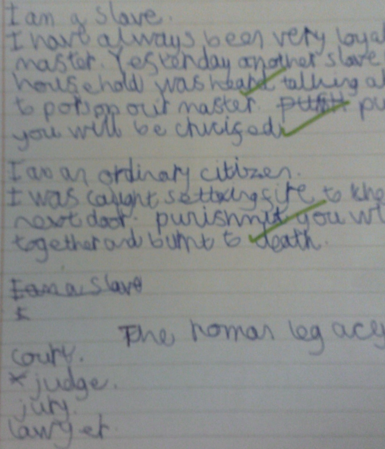 I am a slave.
I have always been very loyal
master. Yesterday another slave
household was heard talking a
to poison our master. pu
you will be chucified.
I am an ordinary citizen.
I was caught setting fire to the
next door. purishmit you wi
together and burnt to death.
I am a slave
I
The roman legacy
court.
* judge.
jury.
lawyer.